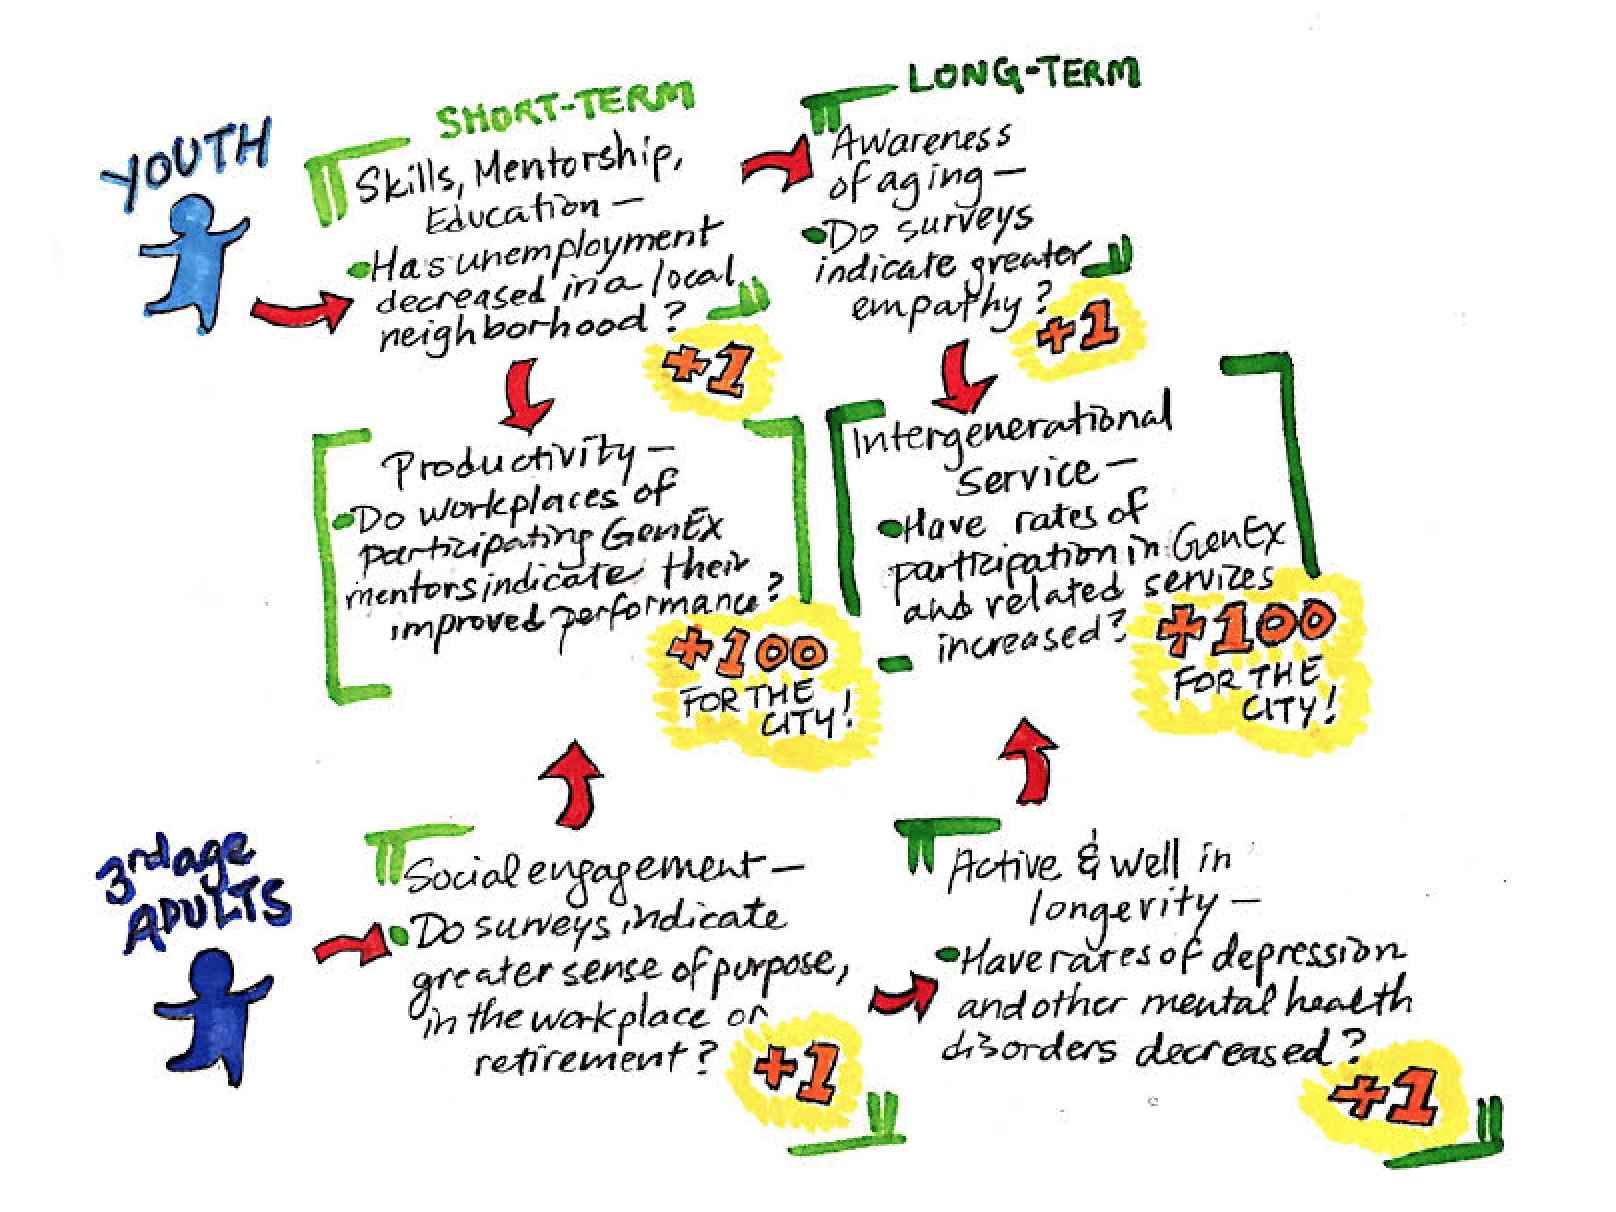 SHORT-TERM
LONG-TERM
YOUTH
Skills, Mentorship,
Education —
Has unemployment
decreased in a local
neighborhood?
+1
Awareness
of aging —
Do surveys
indicate greater
empathy?
+1
Productivity —
Do workplaces of
participating GenEx
mentors indicate their
improved performance?
+100
FOR THE
CITY!
Intergenerational
Service —
Have rates of
participation in GenEx
and related services
increased?
+100
FOR THE
CITY!
3rd age
ADULTS
Social engagement —
Do surveys indicate
greater sense of purpose,
in the workplace or
retirement?
+1
Active & well in
longevity —
Have rates of depression
and other mental health
disorders decreased?
+1